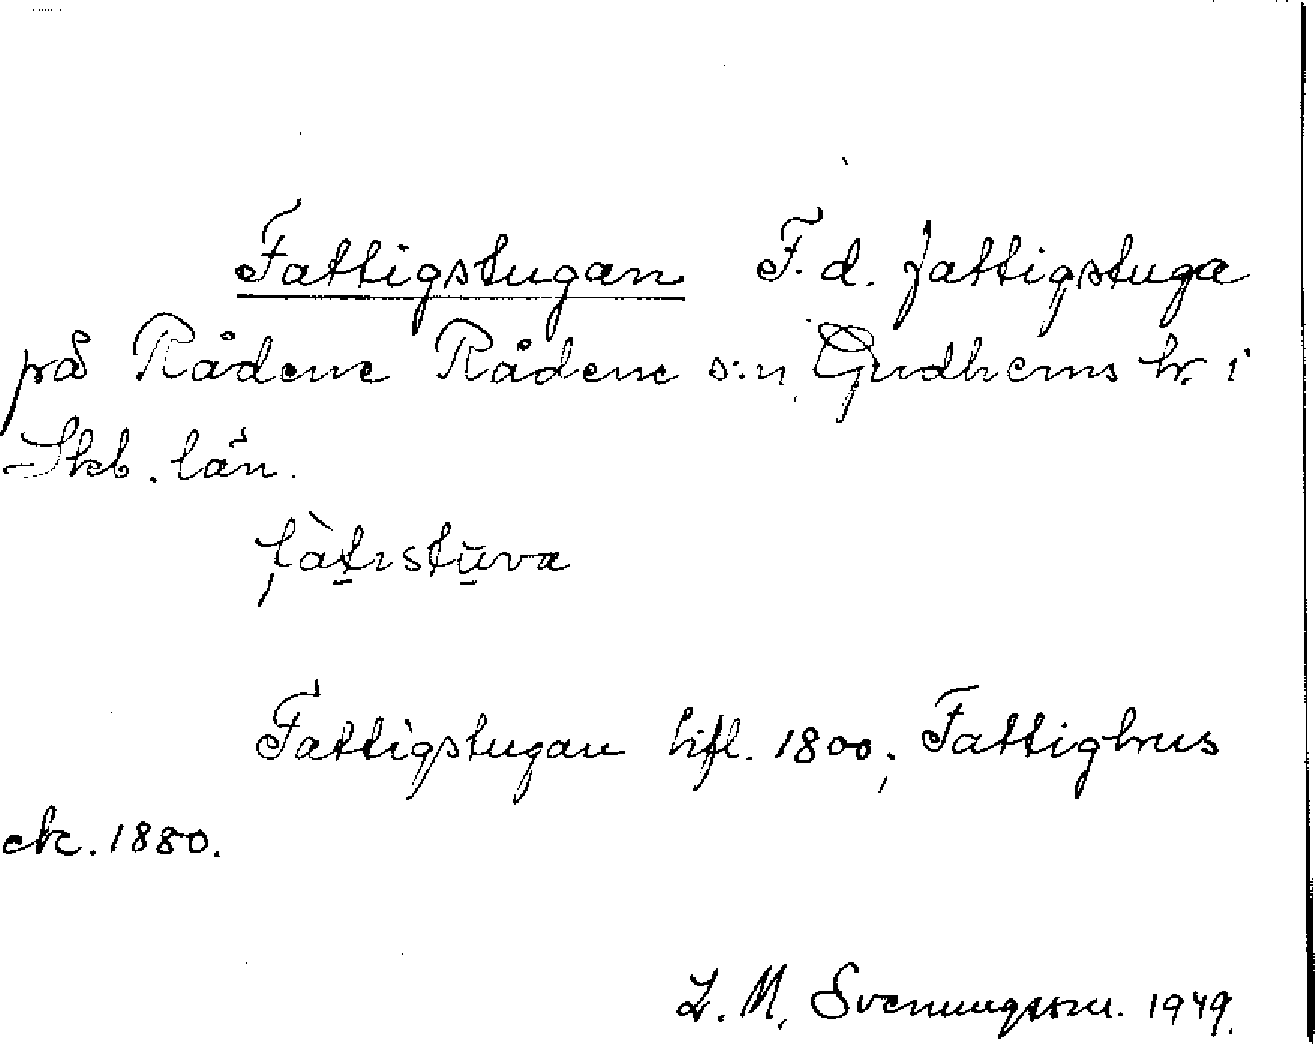 Fattigstugan F. d. fattigstuga
på Rådene Rådene s:n, Gudhems hr. i
Skb. län.
fàtɪstūva
Fattigstugan hfl. 1800; Fattighus
ek. 1880.
L. M. Svenungsson. 1949.